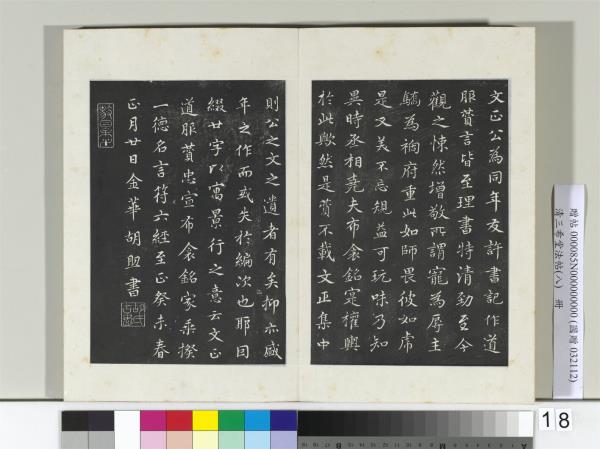 文正公為同年友許書記作道
服贊言皆至理書特清勁至今
觀之悚然增敬所謂寵為辱主
驕為禍府重此如師畏彼如虎
是又美不忘規益可玩味乃知
異時丞相堯夫布衾銘寔權輿
於此歟然是贊不載文正集中
則公之文之遺者有矣抑亦盛
年之作而或失於編次也耶因
綴廿字以寓景行之意云文正
道服贊忠宣布衾銘家乘揆
一德名言符六經至正癸未春
正月廿日金華胡助書
贈帖 000085N000000000 (國贈 032112)
清三希堂法帖(八) 冊
18